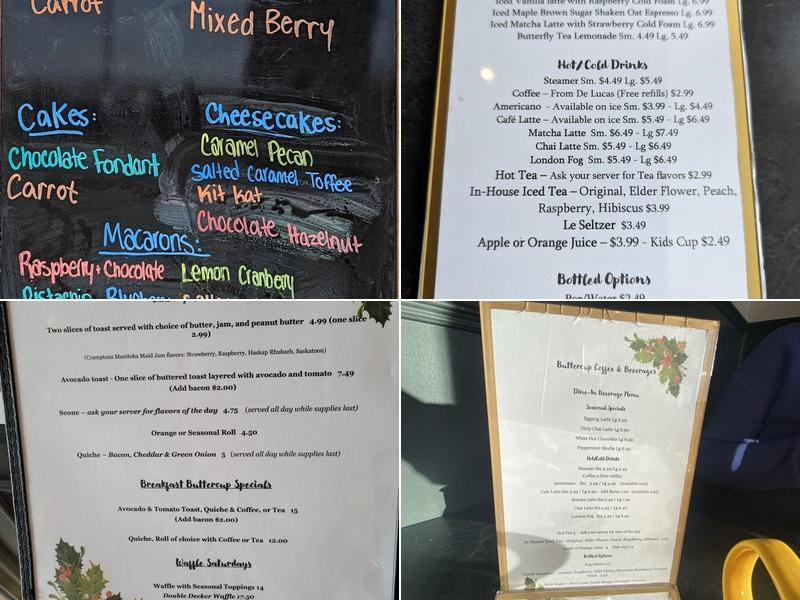 Carrot
Mixed Berry
Cakes:
Chocolate Fondant
Carrot
Cheesecakes:
Caramel Pecan
Salted Caramel Toffee
Kit Kat
Chocolate Hazelnut
Macarons:
Raspberry+Chocolate
Lemon Cranberry
Pistachio
Iced Vanilla latte with Raspberry Cold Foam Lg. 6.99
Iced Maple Brown Sugar Shaken Oat Espresso Lg. 6.99
Iced Matcha Latte with Strawberry Cold Foam Lg. 6.99
Butterfly Tea Lemonade Sm. 4.49 Lg. 5.49
Hot/Cold Drinks
Steamer Sm. $4.49 Lg. $5.49
Coffee – From De Lucas (Free refills) $2.99
Americano - Available on ice Sm. $3.99 - Lg. $4.49
Café Latte – Available on ice Sm. $5.49 - Lg $6.49
Matcha Latte Sm. $6.49 - Lg $7.49
Chai Latte Sm. $5.49 - Lg $6.49
London Fog Sm. $5.49 - Lg $6.49
Hot Tea – Ask your server for Tea flavors $2.99
In-House Iced Tea – Original, Elder Flower, Peach,
Raspberry, Hibiscus $3.99
Le Seltzer $3.49
Apple or Orange Juice – $3.99 - Kids Cup $2.49
Bottled Options
Pop/Water $2.49
Two slices of toast served with choice of butter, jam, and peanut butter 4.99 (one slice
2.99)
(Cramptons Manitoba Maid Jam flavors: Strawberry, Raspberry, Haskap Rhubarb, Saskatoon)
Avocado toast - One slice of buttered toast layered with avocado and tomato 7.49
(Add bacon $2.00)
Scone – ask your server for flavors of the day 4.75 (served all day while supplies last)
Orange or Seasonal Roll 4.50
Quiche – Bacon, Cheddar & Green Onion 5 (served all day while supplies last)
Breakfast Buttercup Specials
Avocado & Tomato Toast, Quiche & Coffee, or Tea 15
(Add bacon $2.00)
Quiche, Roll of choice with Coffee or Tea 12.00
Waffle Saturdays
Waffle with Seasonal Toppings 14
Double Decker Waffle 17.50
Buttercup Coffee & Beverages
Dine-In Beverage Menu
Seasonal Specials
Eggnog Latte Lg 6.99
Dirty Chai Latte Lg 6.99
White Hot Chocolate Lg 6.99
Peppermint Mocha Lg 6.99
Hot/Cold Drinks
Steamer Sm 4.49/Lg 5.49
Coffee 3 (free refills)
Americano Sm 3.99 / Lg 4.49 (available iced)
Cafe Latte Sm 5.49 / Lg 6.49 - add flavor 1.00 (available iced)
Matcha Latte Sm 6.49 / Lg 7.49
Chai Latte Sm 5.49 / Lg 6.49
London Fog Sm 5.49 / Lg 6.49
Hot Tea 3 – Ask your server for teas of the day
In-House Iced Tea - Original, Elder Flower, Peach, Raspberry, Hibiscus
Apple or Orange Juice 4 Kids cup 2.5
Bottled Options